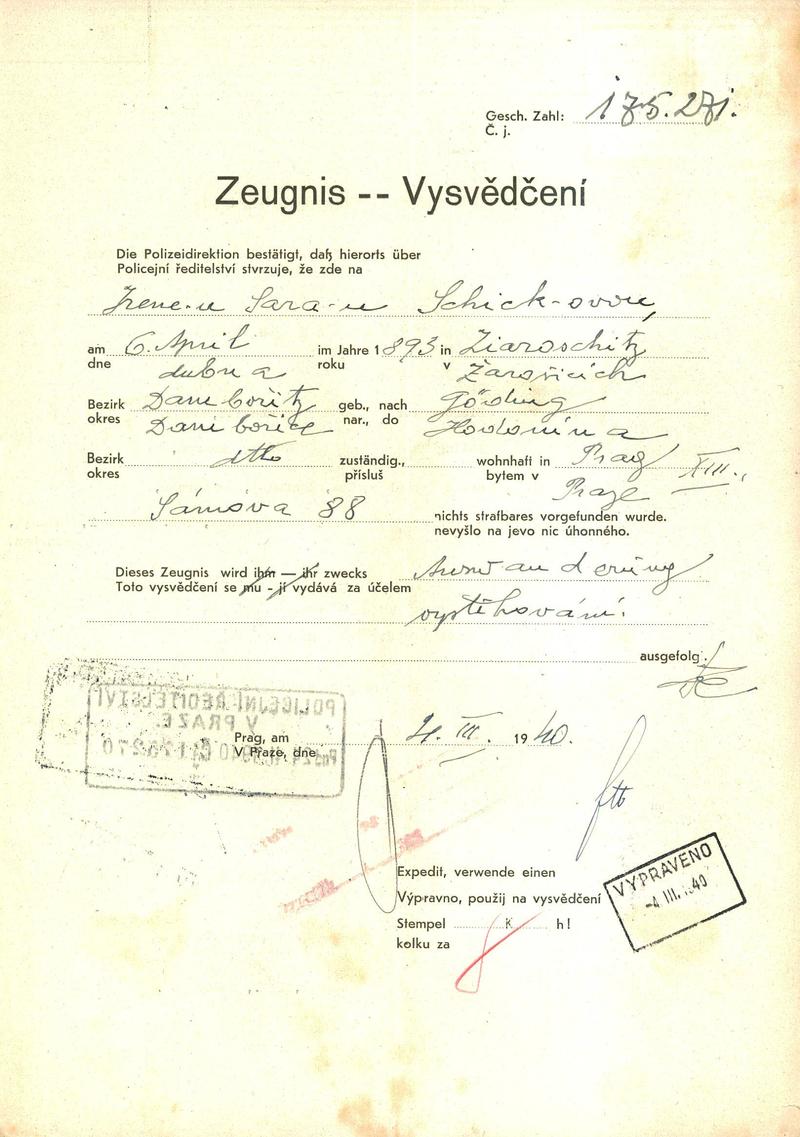 Gesch. Zahl: 175.271.
Č. j.
Zeugnis -- Vysvědčení
Die Polizeidirektion bestätigt, daß hierorts über
Policejní ředitelství stvrzuje, že zde na
Irene-u Sara-u Schick-ovou,
am 6. April im Jahre 1893 in Ziaroschitz
dne dubna roku v Žarošicích
Bezirk Damborschitz geb., nach Göding
okres Dambořice nar., do Hodonína
Bezirk dtto zuständig., wohnhaft in Prag XIII.,
okres přísluš bytem v Praze
Sámova 88 nichts strafbares vorgefunden wurde.
nevyšlo na jevo nic úhonného.
Dieses Zeugnis wird ihm — ihr zwecks Auswanderung
Toto vysvědčení se mu - jí vydává za účelem
vystěhování.
ausgefolg.
POLICEJNÍ ŘEDITELSTVÍ
V PRAZE.
Prag, am 4. III. 1940.
V Praze, dne
Expedit, verwende einen
Výpravno, použij na vysvědčení
Stempel K h!
kolku za
VYPRAVENO
-4 III. 1940